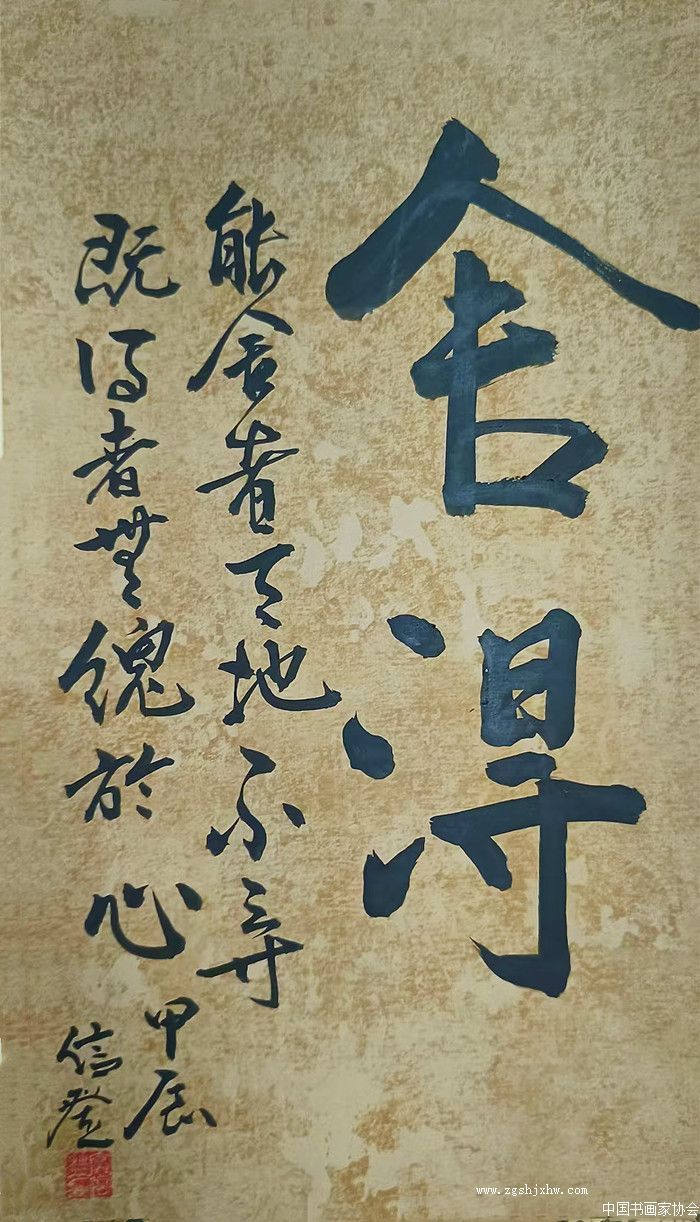 舍得
能舍者天地不弃
既得者無愧於心
甲辰
信登
www.zgshjxhw.com
中国书画家协会